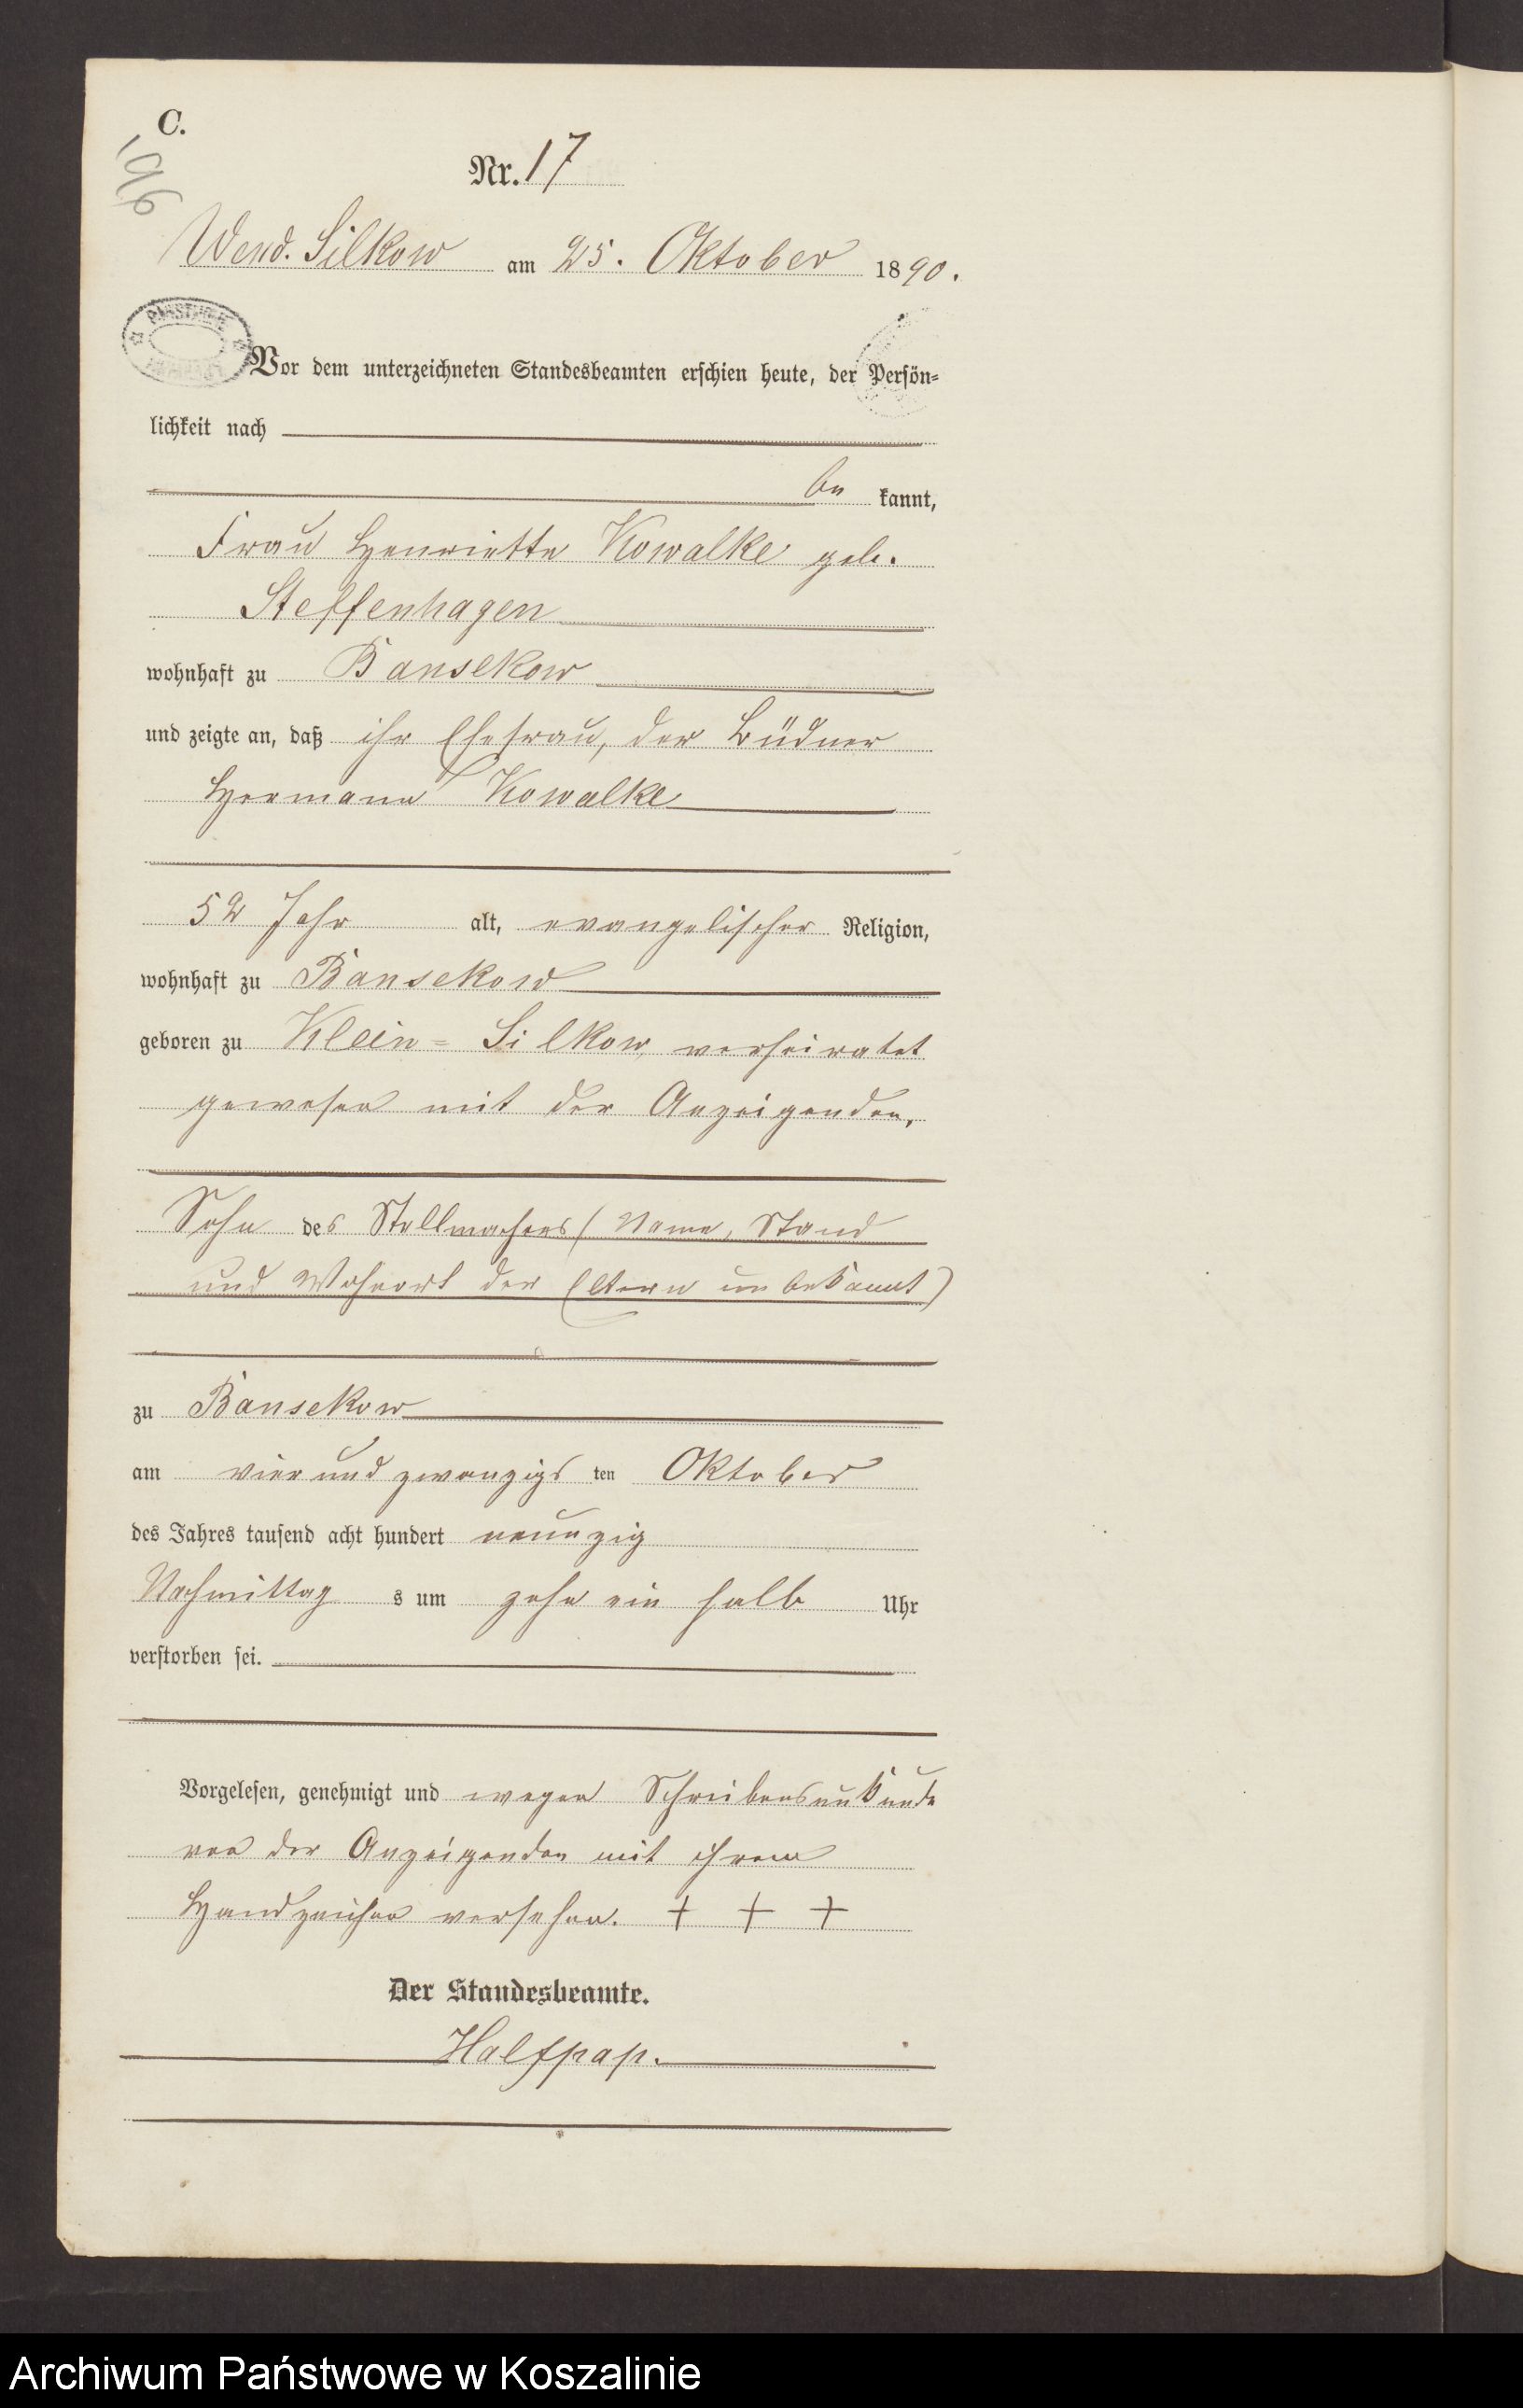 C.
Nr. 17
Wend. Silkow am 25. Oktober 1890.
Vor dem unterzeichneten Standesbeamten erschien heute, der Persön-
lichkeit nach
be kannt,
Frau Henriette Kowalke geb.
Steffenhagen
wohnhaft zu Bansekow
und zeigte an, daß ihr Ehefrau, der Büdner
Hermann Kowalke
52 Jahr alt, evangelischer Religion,
wohnhaft zu Bansekow
geboren zu Klein-Silkow, verheiratet
gewesen mit der Anzeigenden,
Sohn des Stellmachers (Name, Stand
und Wohnort der Eltern unbekannt)
zu Bansekow
am vier und zwanzigsten Oktober
des Jahres tausend acht hundert neunzig
Nachmittags um zehn ein halb Uhr
verstorben sei.
Vorgelesen, genehmigt und wegen Schreibensunkunde
von der Anzeigenden mit ihrem
Handzeichen versehen. + + +
Der Standesbeamte.
Halfpap.
Archiwum Państwowe w Koszalinie